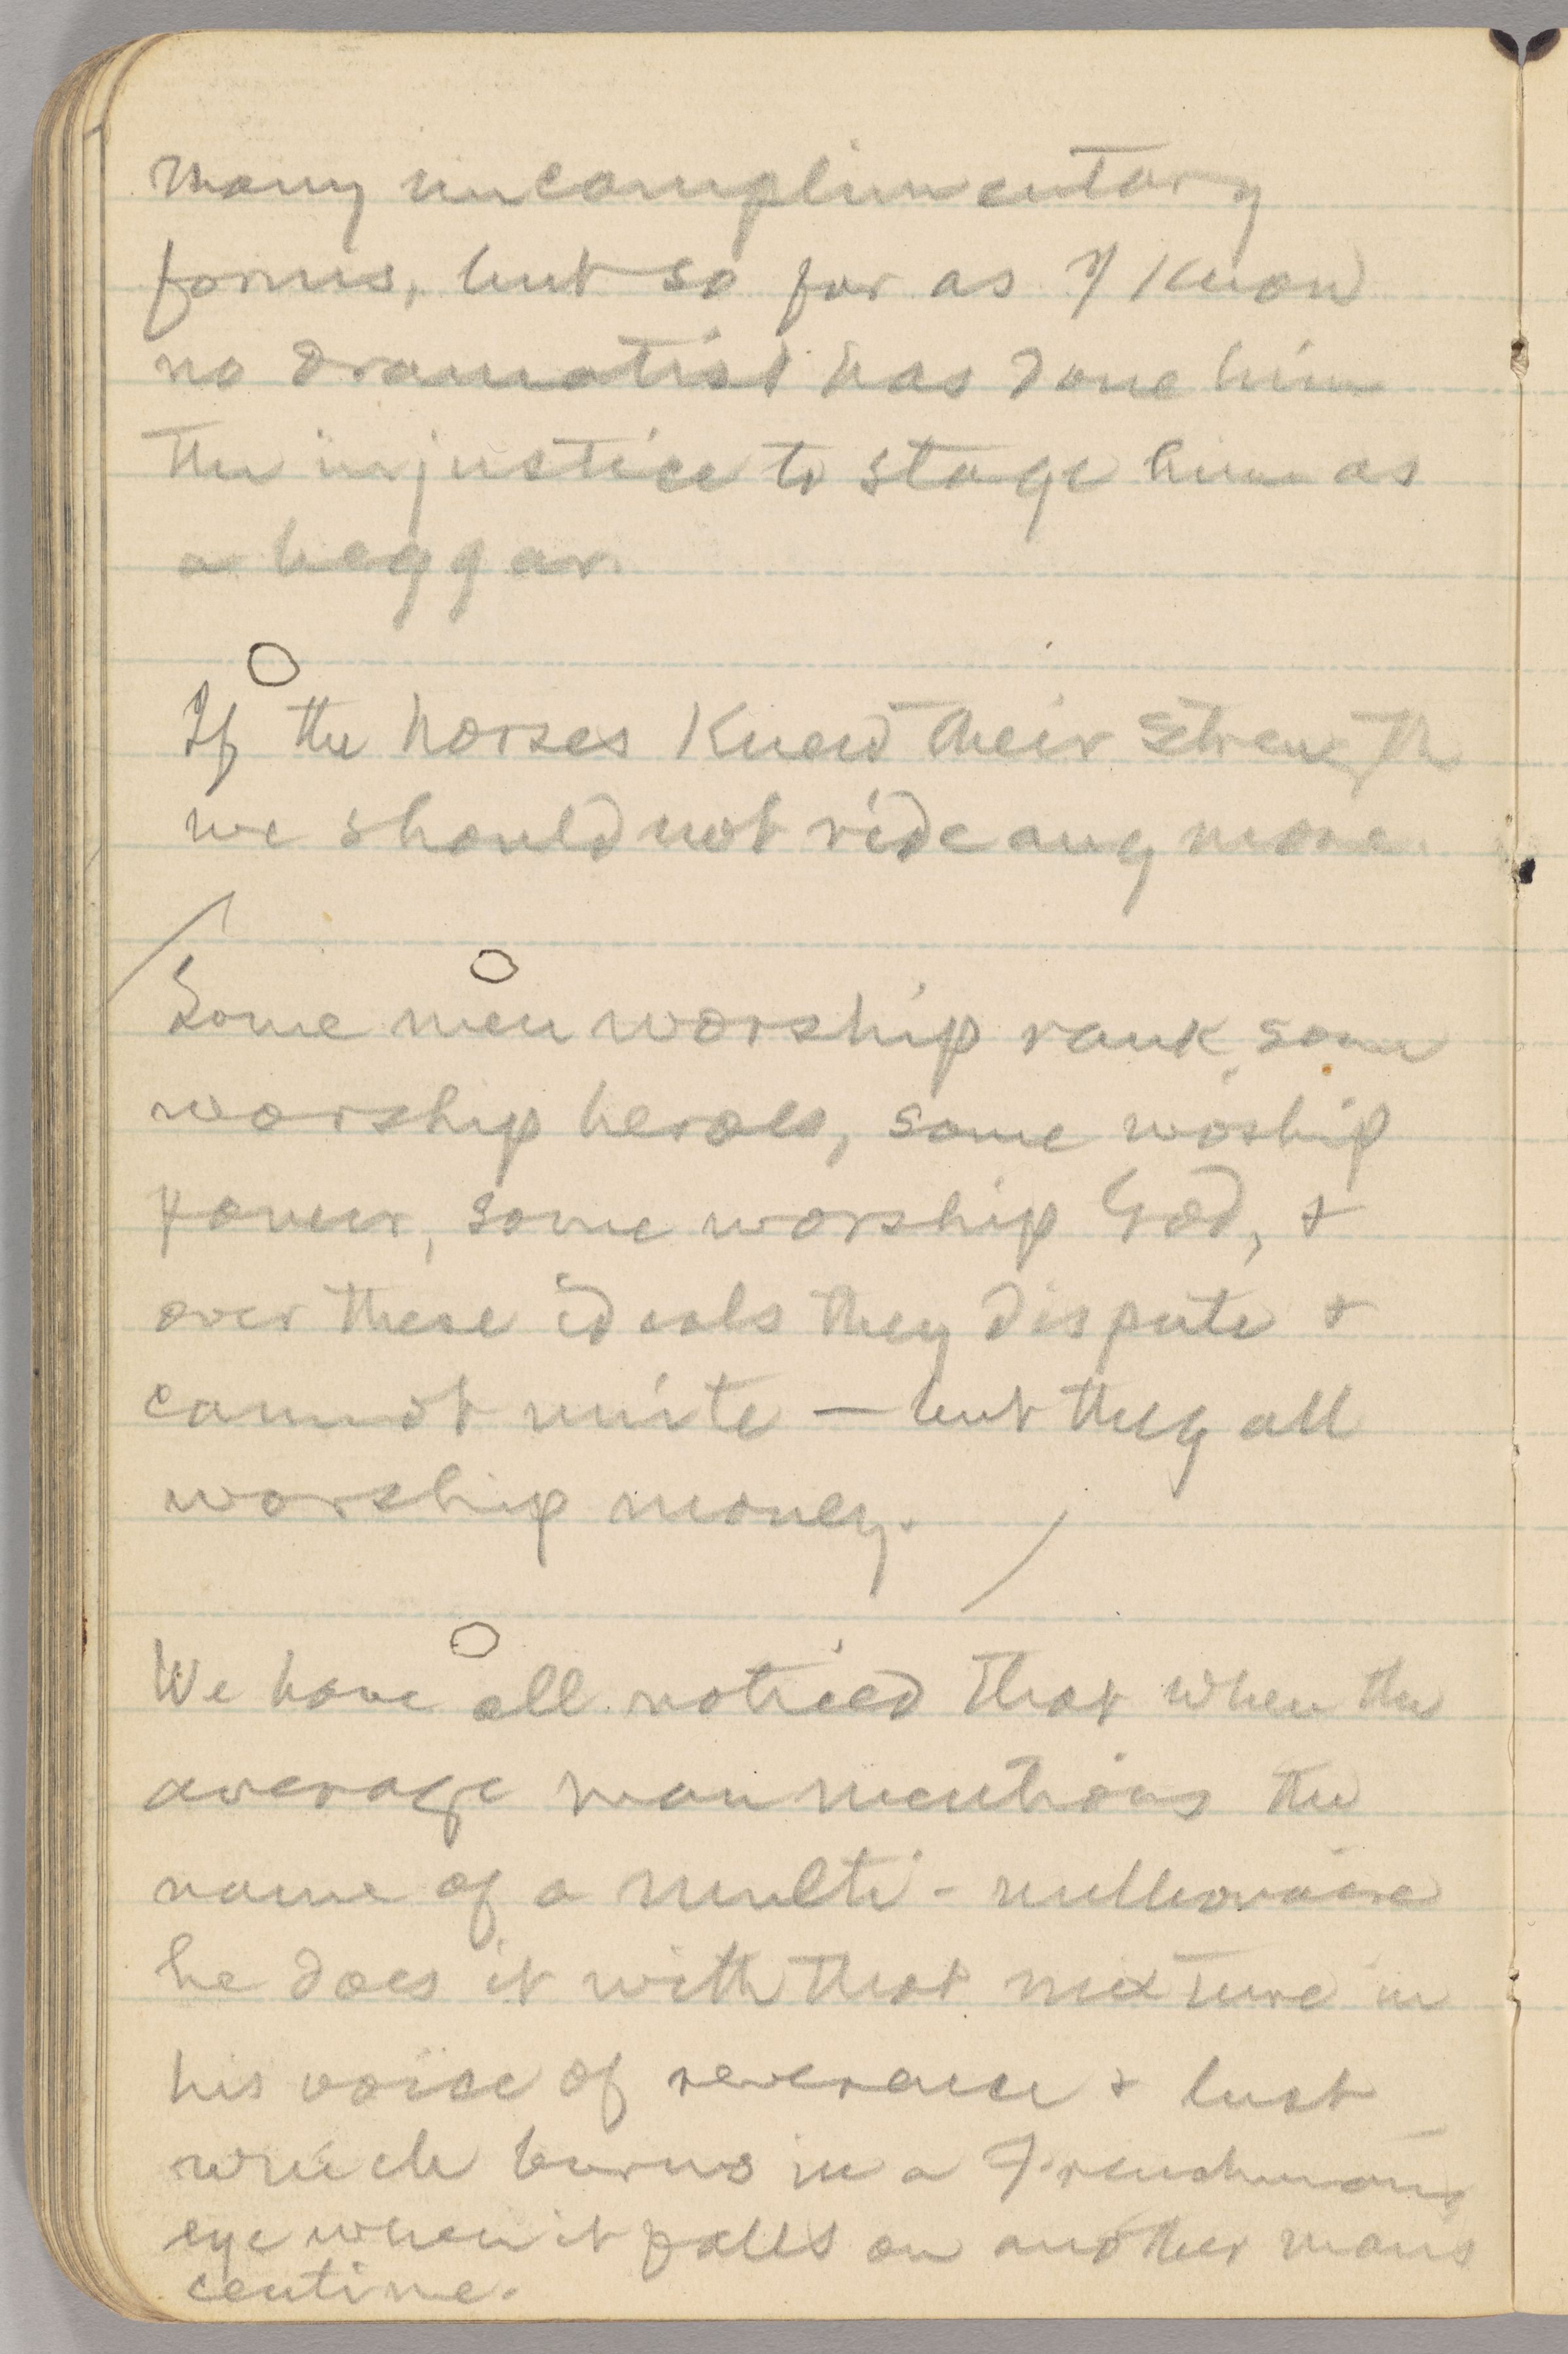 many uncomplimentary
forms, but so far as I know
no dramatist has done him
the injustice to stage him as
a beggar.
If the horses knew their strength
we should not ride any more.
Some men worship rank, some
worship heroes, some woship
power, some worship God, &
over these ideals they dispute &
cannot unite — but they all
worship money.
We have all noticed that when the
average man mentions the
name of a multi-millionaire
he does it with that mixture in
his voice of reverence & lust
which burns in a Frenchman's
eye when it falls on another man's
centime.